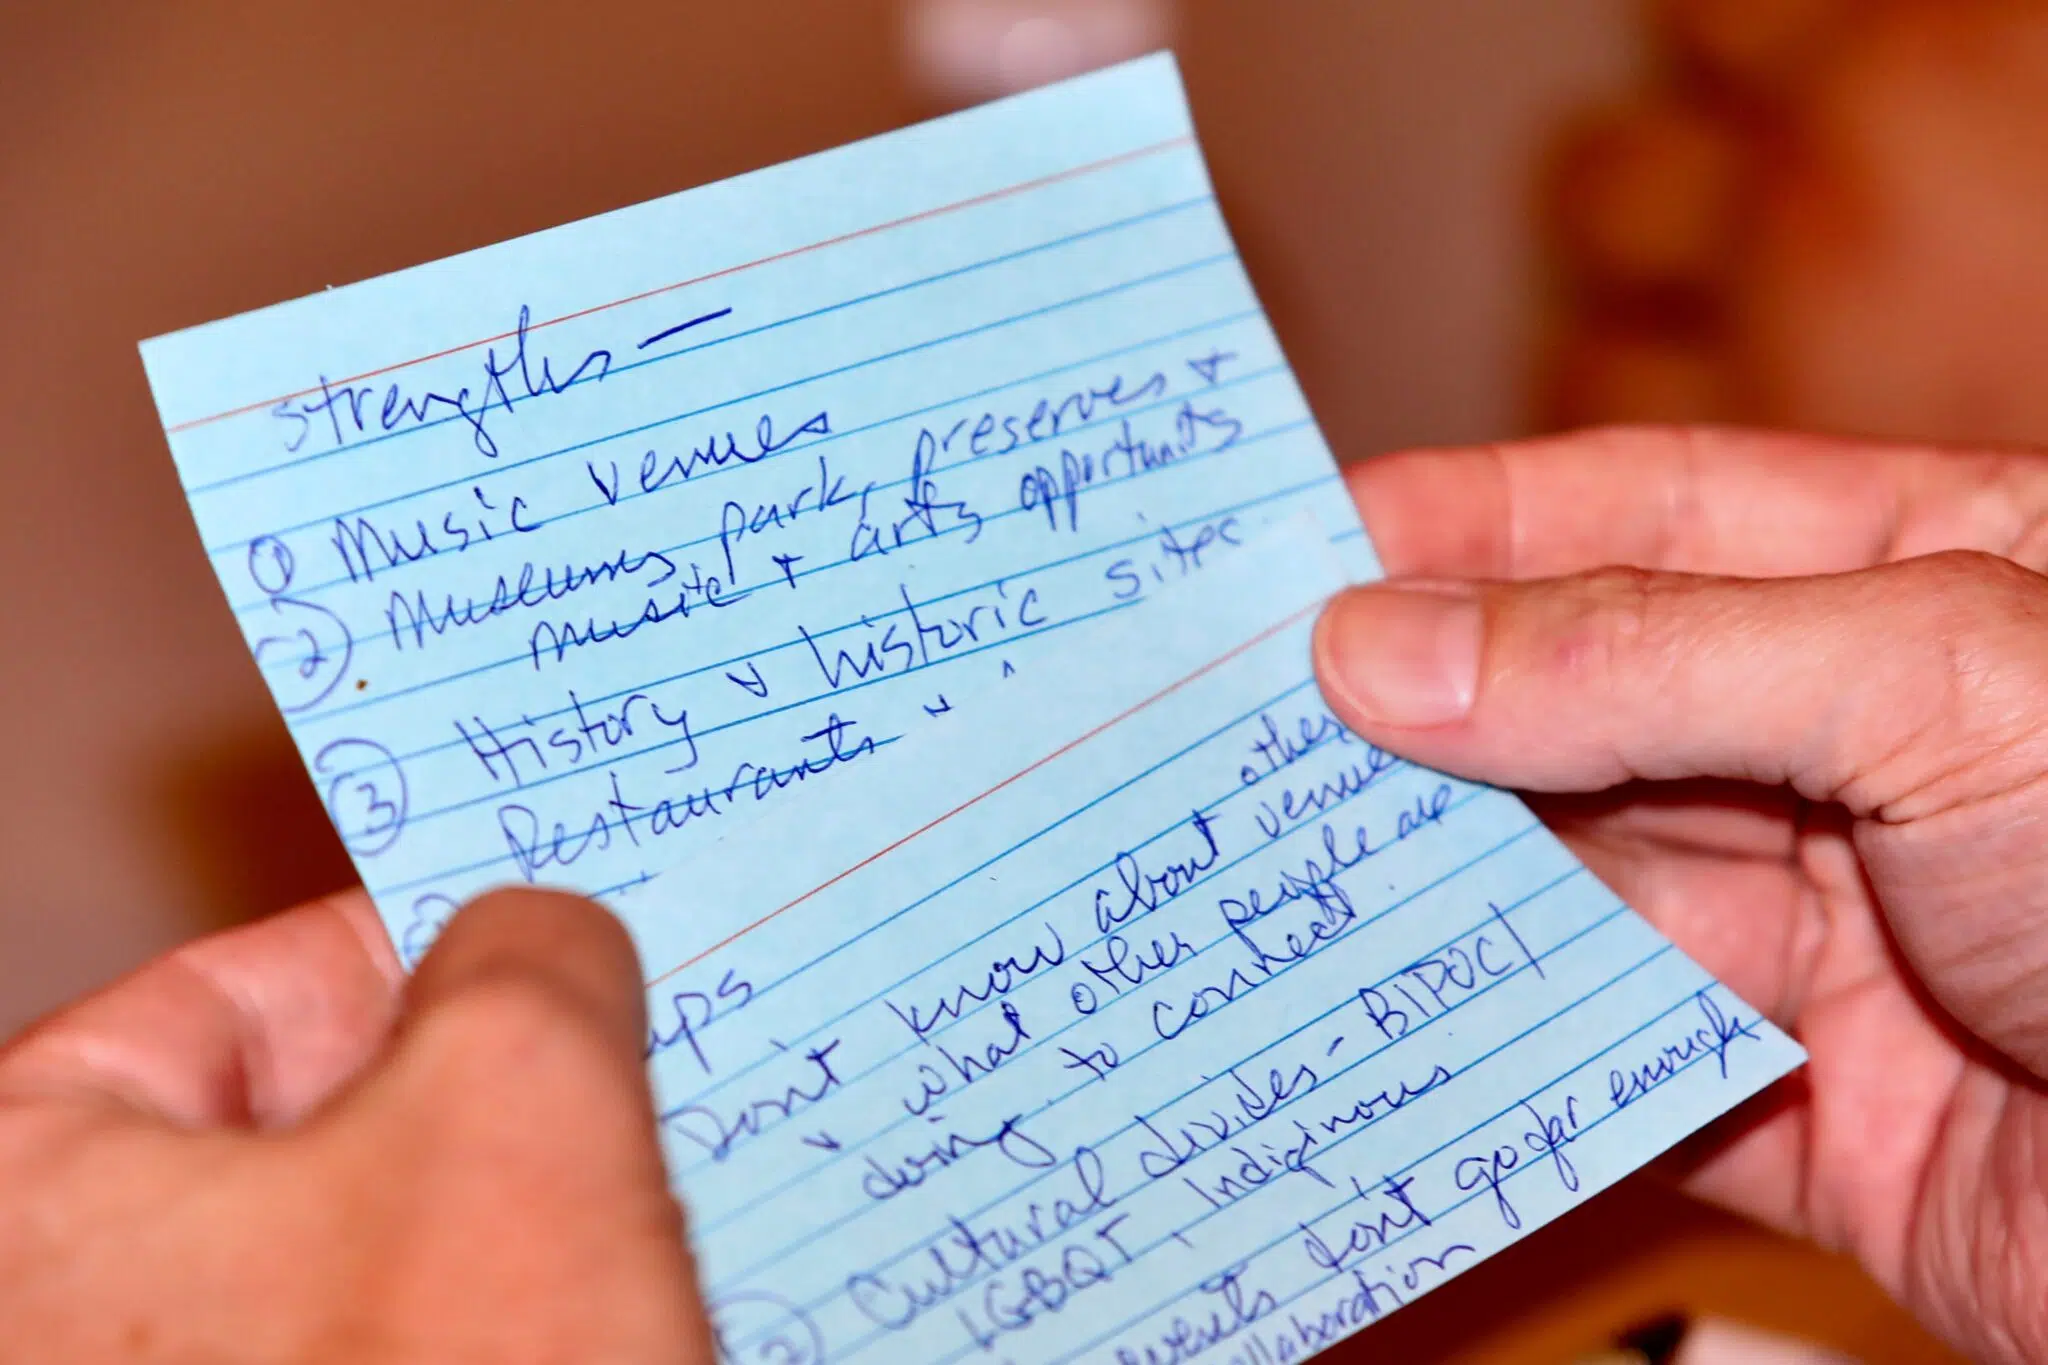 strengths —
① Music venues
② Museums, park, preserves +
music + arts opportunits
③ History + historic sites
Restaurants
Don't know about other
venues
+ what other people are
doing to connect.
Cultural divides - BIPOC/
LGBQT, Indiginous
② events don't go far enough
collaboration